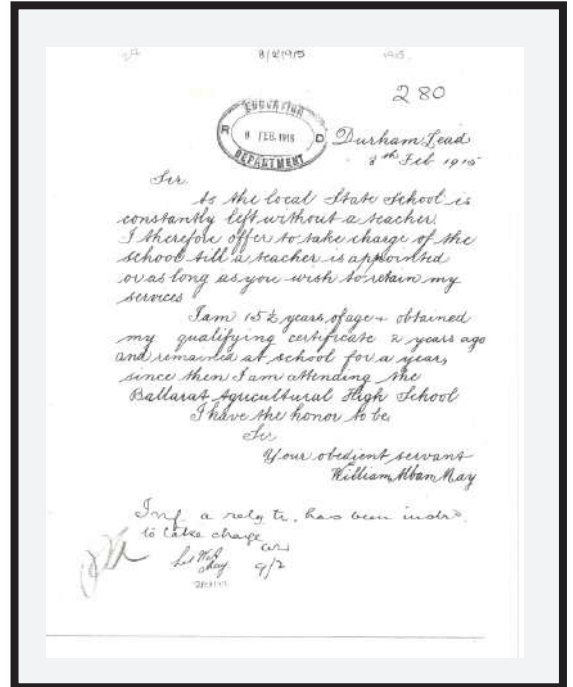 8/2/1915
280
EDUCATION
R 9 FEB. 1915 D
DEPARTMENT
Durham Lead
8th Feb 1915
Sir.
As the local State School is
constantly left without a teacher.
I therefore offer to take charge of the
school till a teacher is appointed
or as long as you wish to retain my
services
I am 15½ years of age + obtained
my qualifying certificate 2 years ago
and remained at school for a year,
since then I am attending the
Ballarat Agricultural High School
I have the honor to be,
Sir
Your obedient servant
William Alban May
Inf. a relg tr. has been instrd
to take charge
9/2